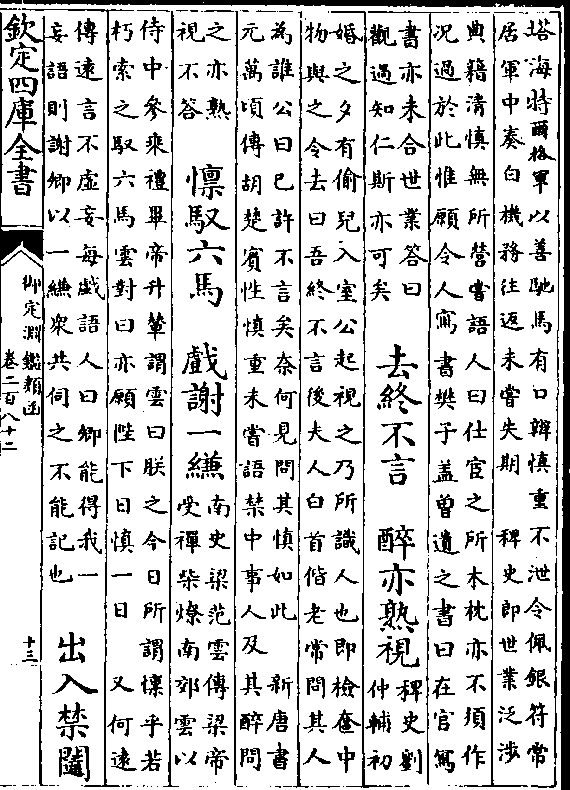 塔海特爾格軍以善馳馬有口辯慎重不泄令佩銀符常
居軍中奏白機務往返未嘗失期 稗史郎世業泛涉
典籍清慎無所營嘗語人曰仕宦之所木枕亦不須作
况過於此惟願令人寫書樊子蓋曾遺之書曰在官寫
書亦未合世業答曰
觀過知仁斯亦可矣
去終不言 醉亦熟視
稗史劉
仲輔初
婚之夕有偷兒入室公起視之乃所識人也即檢奩中
物與之令去曰吾終不言後夫人白首偕老常問其人
為誰公曰已許不言矣奈何見問其慎如此 新唐書
元萬頃傳胡楚賓性慎重未嘗語禁中事人及其醉問
之亦熟
視不答
懔馭六馬 戲謝一縑
南史梁范雲傳梁帝
受禪柴燎南郊雲以
侍中參乘禮畢帝升輦謂雲曰朕之今日所謂懔乎若
朽索之馭六馬雲對曰亦願陛下日慎一日 又何遠
傳遠言不虚妄每戲語人曰卿能得我一
妄語則謝卿以一縑衆共伺之不能記也
出入禁闥
欽定四庫全書
御定淵鑑類函
卷二百八十二
十三